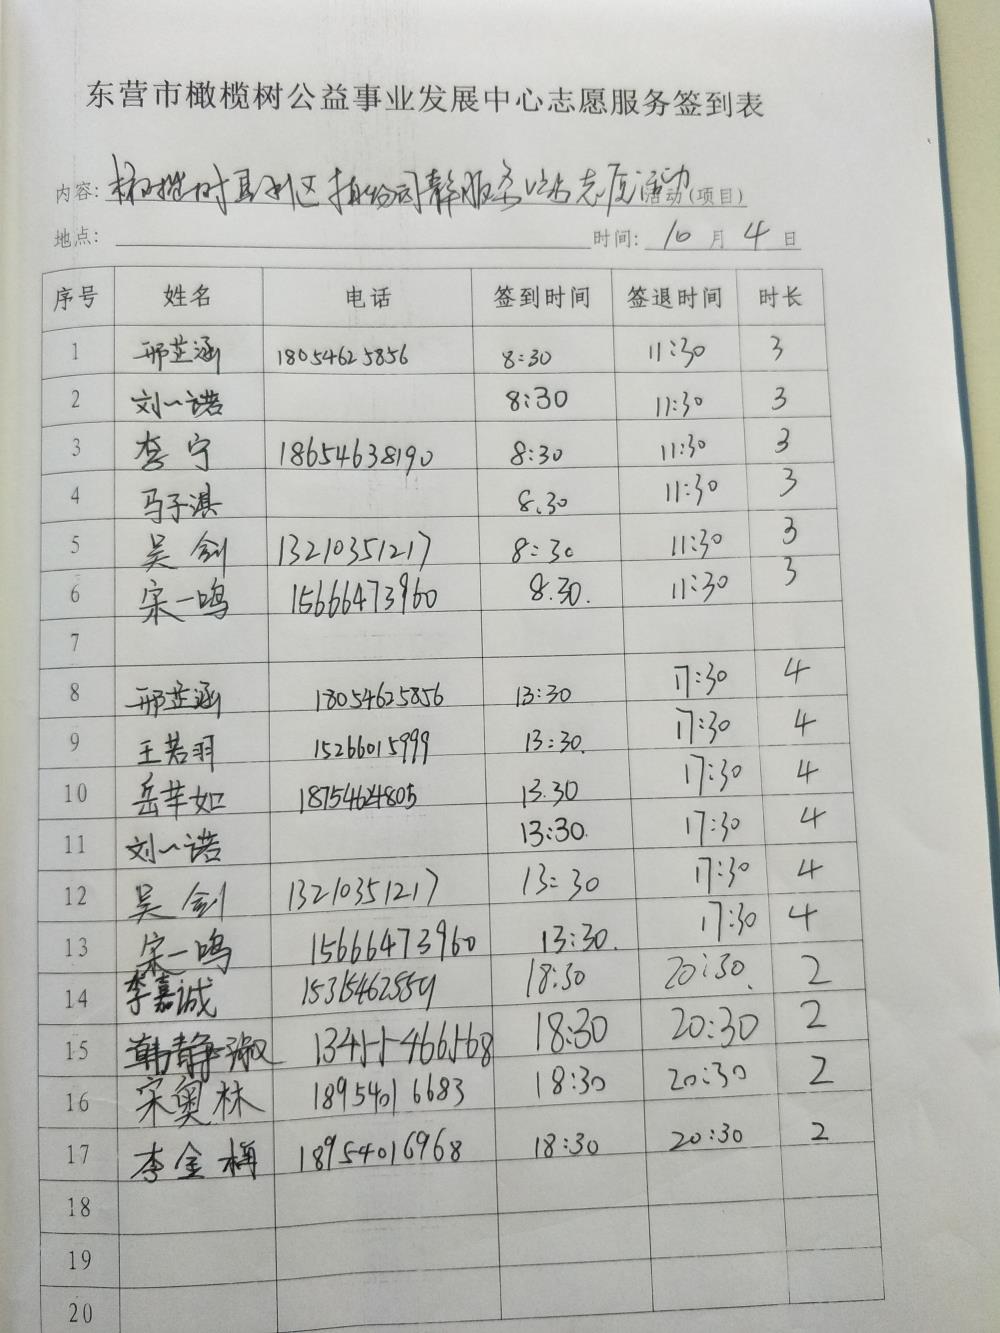 东营市橄榄树公益事业发展中心志愿服务签到表
内容: 橄榄树垦利区 静 志 活动 活动(项目)
地点: 时间: 10 月 4 日
序号 姓名 电话 签到时间 签退时间 时长
1 邢芷涵 18054625856 8:30 11:30 3
2 刘一诺 8:30 11:30 3
3 李宁 18654638190 8:30 11:30 3
4 马子淇 8.30 11:30 3
5 吴剑 13210351217 8:30 11:30 3
6 宋一鸣 15666473960 8.30. 11:30 3
7
8 邢芷涵 18054625856 13:30 17:30 4
9 王若羽 15266015999 13:30. 17:30 4
10 岳芊如 18754624805 13.30 17:30 4
11 刘一诺 13:30. 17:30 4
12 吴剑 13210351217 13:30 17:30 4
13 宋一鸣 15666473960 13:30. 17:30 4
14 李嘉诚 18:30 20:30. 2
15 韩静 18:30 20:30 2
16 宋奥林 18954016683 18:30 20:30 2
17 李金梅 18954016968 18:30 20:30 2
18
19
20